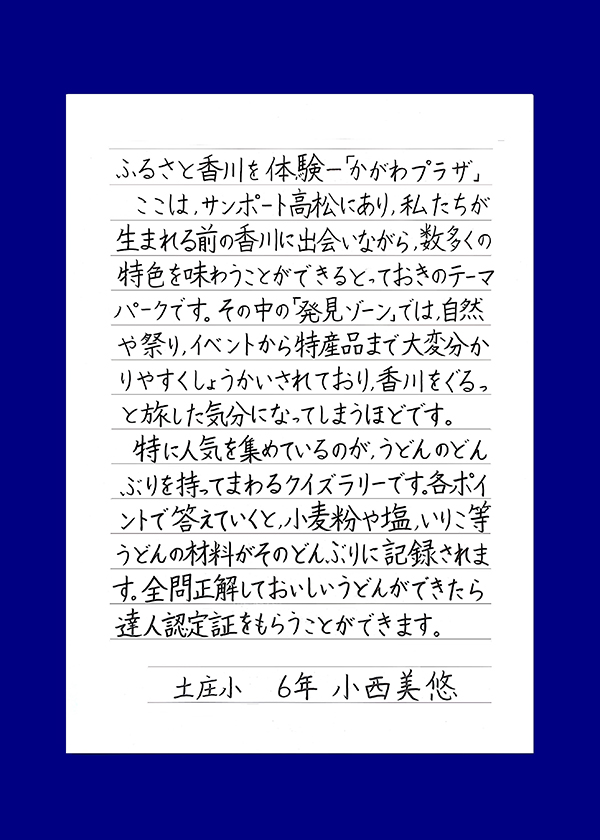 ふるさと香川を体験ー「かがわプラザ」
ここは,サンポート高松にあり,私たちが
生まれる前の香川に出会いながら,数多くの
特色を味わうことができるとっておきのテーマ
パークです。その中の「発見ゾーン」では,自然
や祭り,イベントから特産品まで大変分か
りやすくしょうかいされており,香川をぐるっ
と旅した気分になってしまうほどです。
特に人気を集めているのが,うどんのどん
ぶりを持ってまわるクイズラリーです。各ポイ
ントで答えていくと,小麦粉や塩,いりこ等
うどんの材料がそのどんぶりに記録されま
す。全問正解しておいしいうどんができたら
達人認定証をもらうことができます。
土庄小 6年 小西美悠